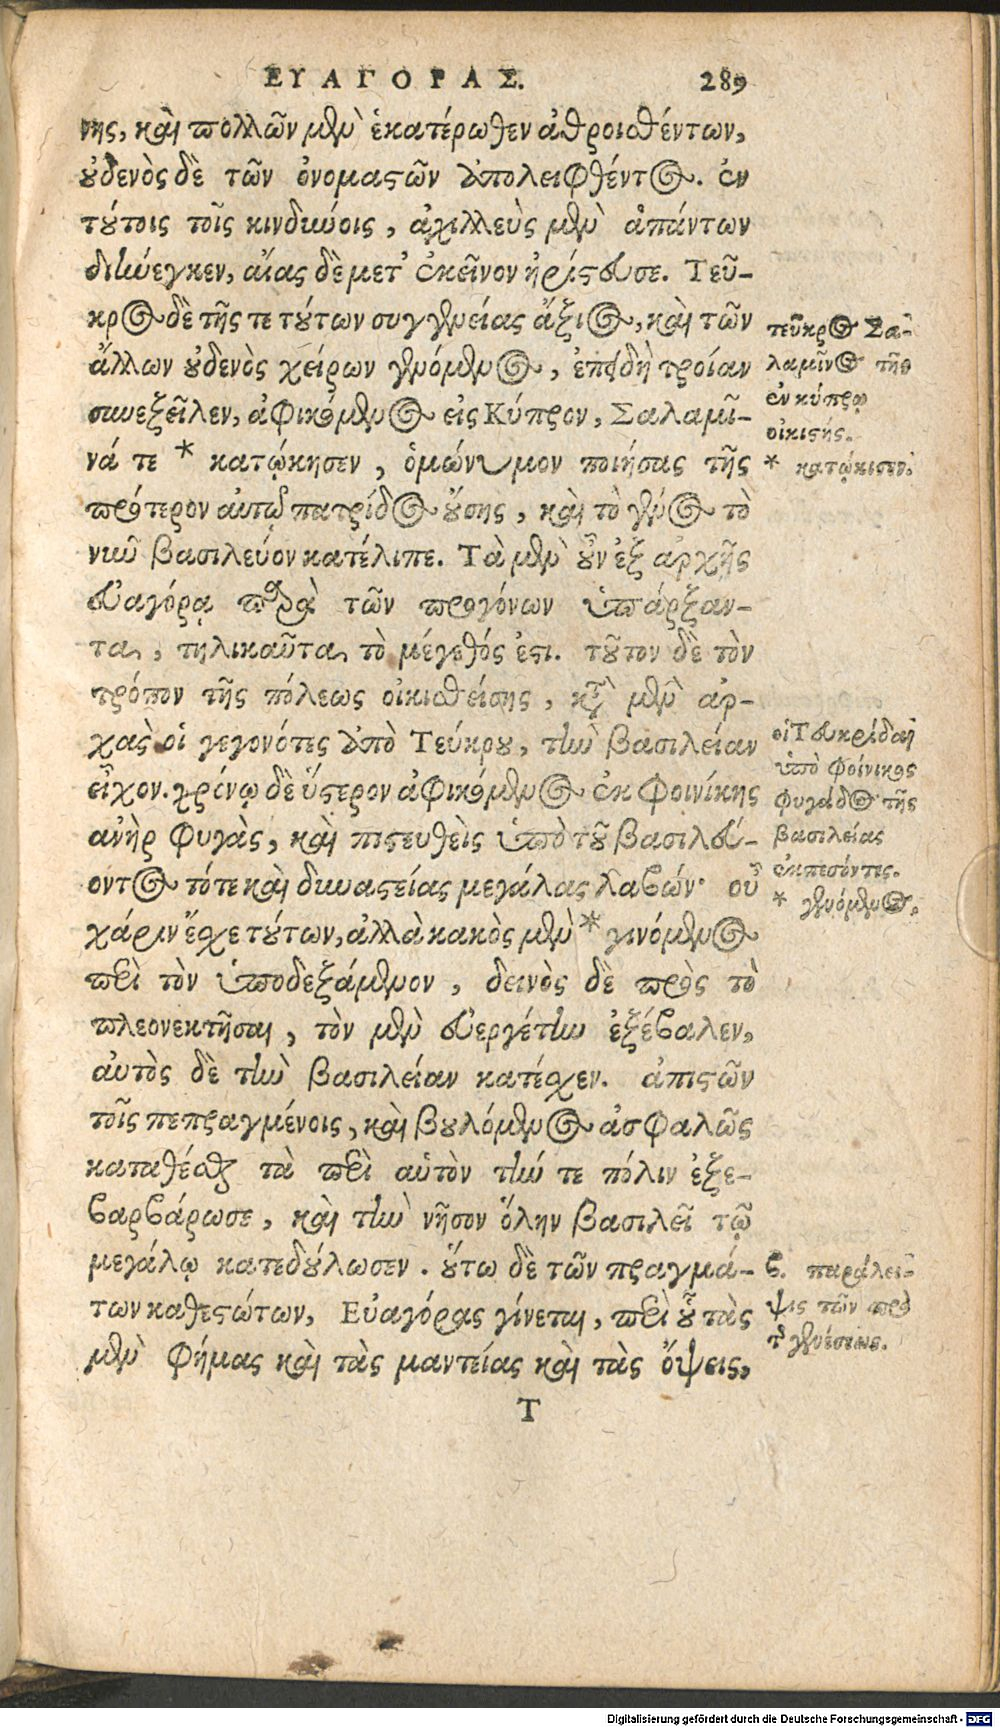 ΕΥΑΓΟΡΑΣ. 289
νης, καὶ πολλῶν μὲν ἑκατέρωθεν ἀθροισθέντων,
οὐδενὸς δὲ τῶν ὀνομαστῶν ἀπολειφθέντος. ἐν
τούτοις τοῖς κινδύνοις, ἀχιλλεὺς μὲν ἁπάντων
διήνεγκεν, αἴας δὲ μετ' ἐκεῖνον ἠρίστευσε. Τεῦ-
κρος δὲ τῆς τε τούτων συγγενείας ἄξιος, καὶ τῶν
ἄλλων οὐδενὸς χείρων γενόμενος, ἐπειδὴ τροίαν
συνεξεῖλεν, ἀφικόμενος εἰς Κύπρον, Σαλαμῖ-
νά τε * κατῴκησεν, ὁμώνυμον ποιήσας τῆς
πρότερον αὐτῷ πατρίδος οὔσης, καὶ τὸ γένος τὸ
νῦν βασιλεύον κατέλιπε. Τὰ μὲν οὖν ἐξ ἀρχῆς
εὐαγόρᾳ παρὰ τῶν προγόνων ὑπάρξαν-
τα, τηλικαῦτα τὸ μέγεθός ἐστι. τοῦτον δὲ τὸν
τρόπον τῆς πόλεως οἰκισθείσης, κατ' μὲν ἀρ-
χὰς οἱ γεγονότες ἀπὸ Τεύκρου, τὴν βασιλείαν
εἶχον. χρόνῳ δὲ ὕστερον ἀφικόμενος ἐκ Φοινίκης
ἀνὴρ φυγὰς, καὶ πιστευθεὶς ὑπὸ τοῦ βασιλεύ-
οντος τότε καὶ δυναστείας μεγάλας λαβών· οὐ
χάριν ἔσχε τούτων, ἀλλὰ κακὸς μὲν * γινόμενος
περὶ τὸν ὑποδεξάμενον, δεινὸς δὲ πρὸς τὸ
πλεονεκτῆσαι, τὸν μὲν εὐεργέτην ἐξέβαλεν,
αὐτὸς δὲ τὴν βασιλείαν κατέσχεν. ἀπιστῶν
τοῖς πεπραγμένοις, καὶ βουλόμενος ἀσφαλῶς
καταθέσθαι τὰ περὶ αὑτὸν τήν τε πόλιν ἐξε-
βαρβάρωσε, καὶ τὴν νῆσον ὅλην βασιλεῖ τῷ
μεγάλῳ κατεδούλωσεν. οὕτω δὲ τῶν πραγμά-
των καθεστώτων, Εὐαγόρας γίνεται, περὶ οὗ τὰς
μὲν φήμας καὶ τὰς μαντείας καὶ τὰς ὄψεις,
Τ
τεῦκρος Σα-
λαμῖνος τῆς
ἐν κύπρῳ
οἰκιστής.
* κατῴκισεν.
οἱ Τευκρίδαι
ὑπὸ φοίνικος
φυγάδος τῆς
βασιλείας
ἐκπεσόντες.
* γενόμενος.
ϛ. παράλει-
ψις τῶν πρὸ
τ γενέσεως.
Digitalisierung gefördert durch die Deutsche Forschungsgemeinschaft - DFG